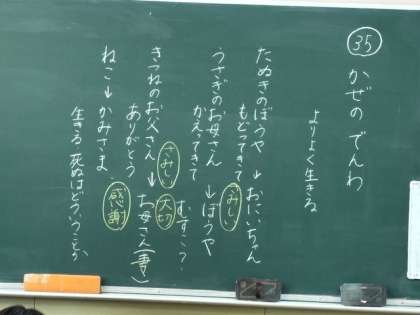 35
かぜの でんわ
よりよく生きる
たぬきのぼうや → おにいちゃん
もどってきて
さみしい
うさぎのお母さん → ぼうや
かえってきて
むすこ?
さみしい
大切
きつねのお父さん → お母さん(妻)
ありがとう
感謝
ねこ → かみさま
生きる 死ぬはどういうことか